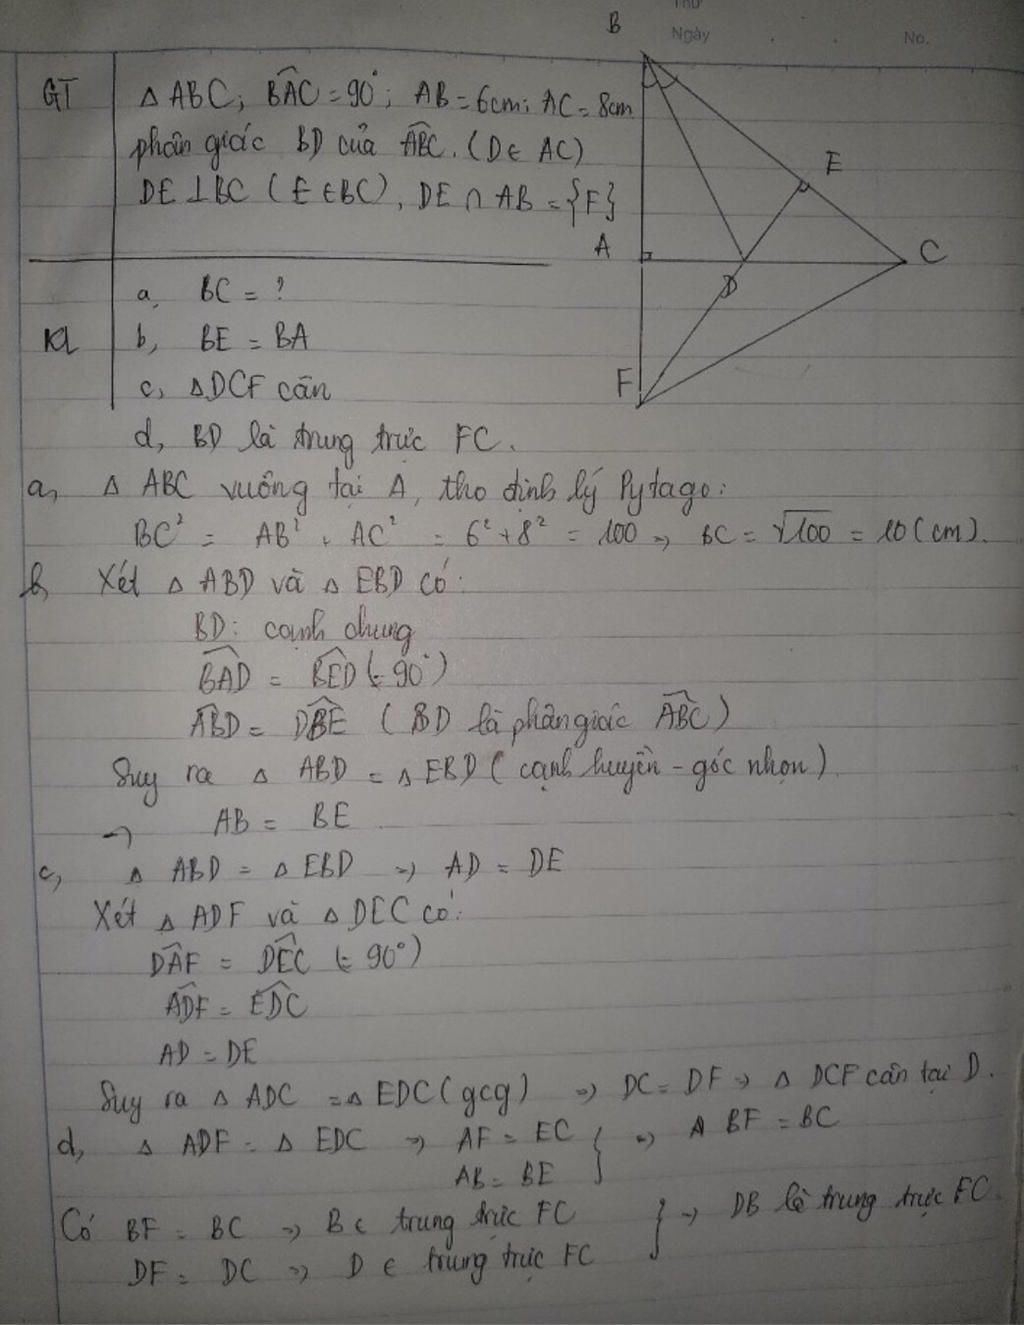 Thứ
Ngày . . No.
B
GT △ ABC; BAC = 90°; AB = 6cm; AC = 8cm
phân giác BD của ABC. (D ∈ AC)
DE ⊥ BC (E ∈ BC), DE ∩ AB = {F}
E
A
C
D
F
a, BC = ?
KL b, BE = BA
c, △DCF cân
d, BD là trung trực FC.
a, △ ABC vuông tại A, tho định lý Pytago:
BC² = AB² + AC² = 6² + 8² = 100 → BC = √100 = 10 (cm).
b, Xét △ ABD và △ EBD có:
BD: cạnh chung
BAD = BED (= 90°)
ABD = DBE (BD là phân giác ABC)
Suy ra △ ABD = △ EBD (cạnh huyền - góc nhọn)
→ AB = BE
c, △ ABD = △ EBD → AD = DE
Xét △ ADF và △ DEC có:
DAF = DEC (= 90°)
ADF = EDC
AD = DE
Suy ra △ ADC = △ EDC (gcg) → DC = DF → △ DCF cân tại D.
d, △ ADF = △ EDC → AF = EC } → BF = BC
AB = BE
Có BF = BC → B ∈ trung trực FC } → DB là trung trực FC.
DF = DC → D ∈ trung trực FC